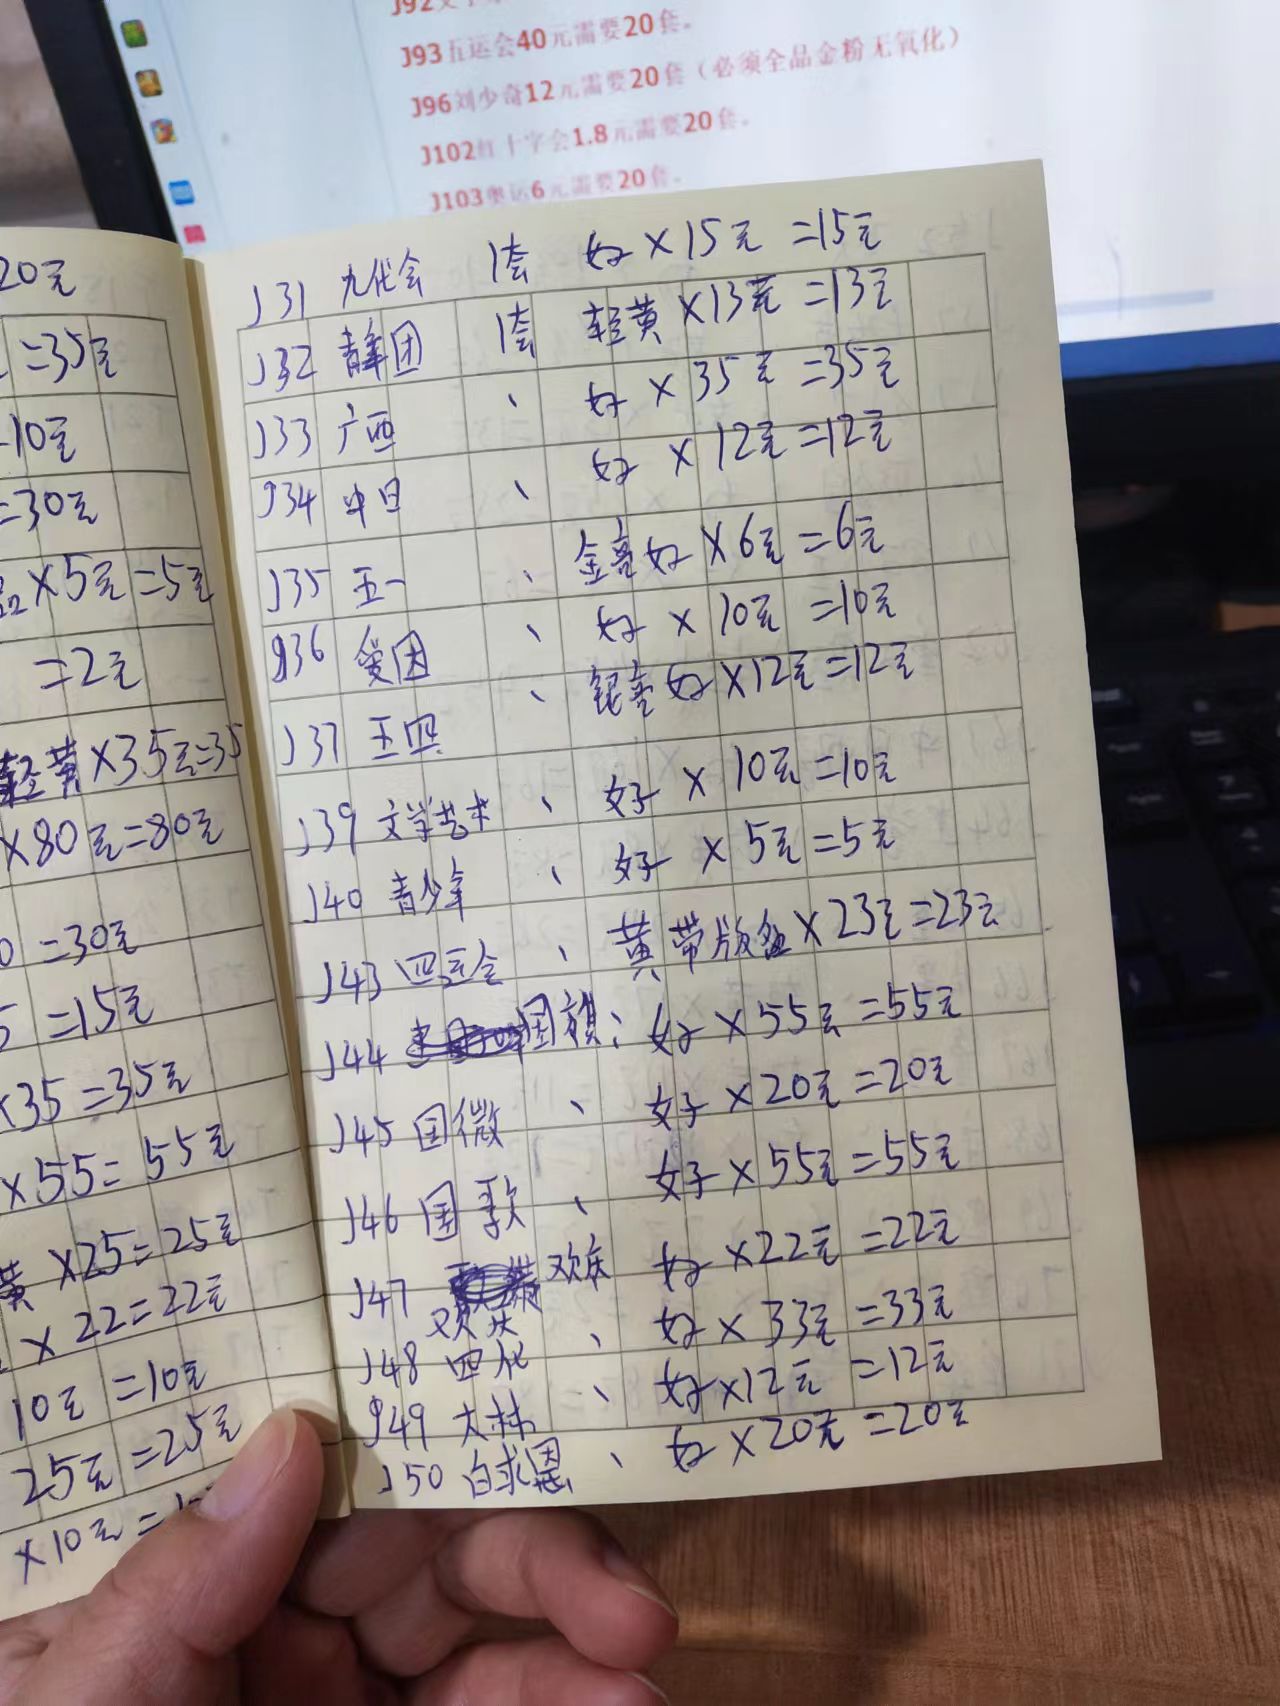 J92
J93五运会40元需要20套。
J96刘少奇12元需要20套（必须全品金粉无氧化）
J102红十字会1.8元需要20套。
J103奥运6元需要20套。
20元
=35元
=10元
=30元
品×5元=5元
=2元
轻黄×35元=35
×80元=80元
0 =30元
5 =15元
×35=35元
×55=55元
黄×25=25元
×22=22元
10元=10元
25元=25元
×10元=
J31 九代会 1套 好×15元=15元
J32 青年团 1套 轻黄×13元=13元
J33 广西 、 好×35元=35元
J34 中日 、 好×12元=12元
J35 五一 、 金亮好×6元=6元
J36 爱因 、 好×10元=10元
J37 五四 、 银亮好×12元=12元
J39 文学艺术 、 好×10元=10元
J40 青少年 、 好×5元=5元
J43 四运会 、 黄带版铭×23元=23元
J44 国旗、 好×55元=55元
J45 国徽 、 好×20元=20元
J46 国歌 、 好×55元=55元
J47 欢庆 好×22元=22元
J48 四化 、 好×33元=33元
J49 大林 、 好×12元=12元
J50 白求恩 、 好×20元=20元